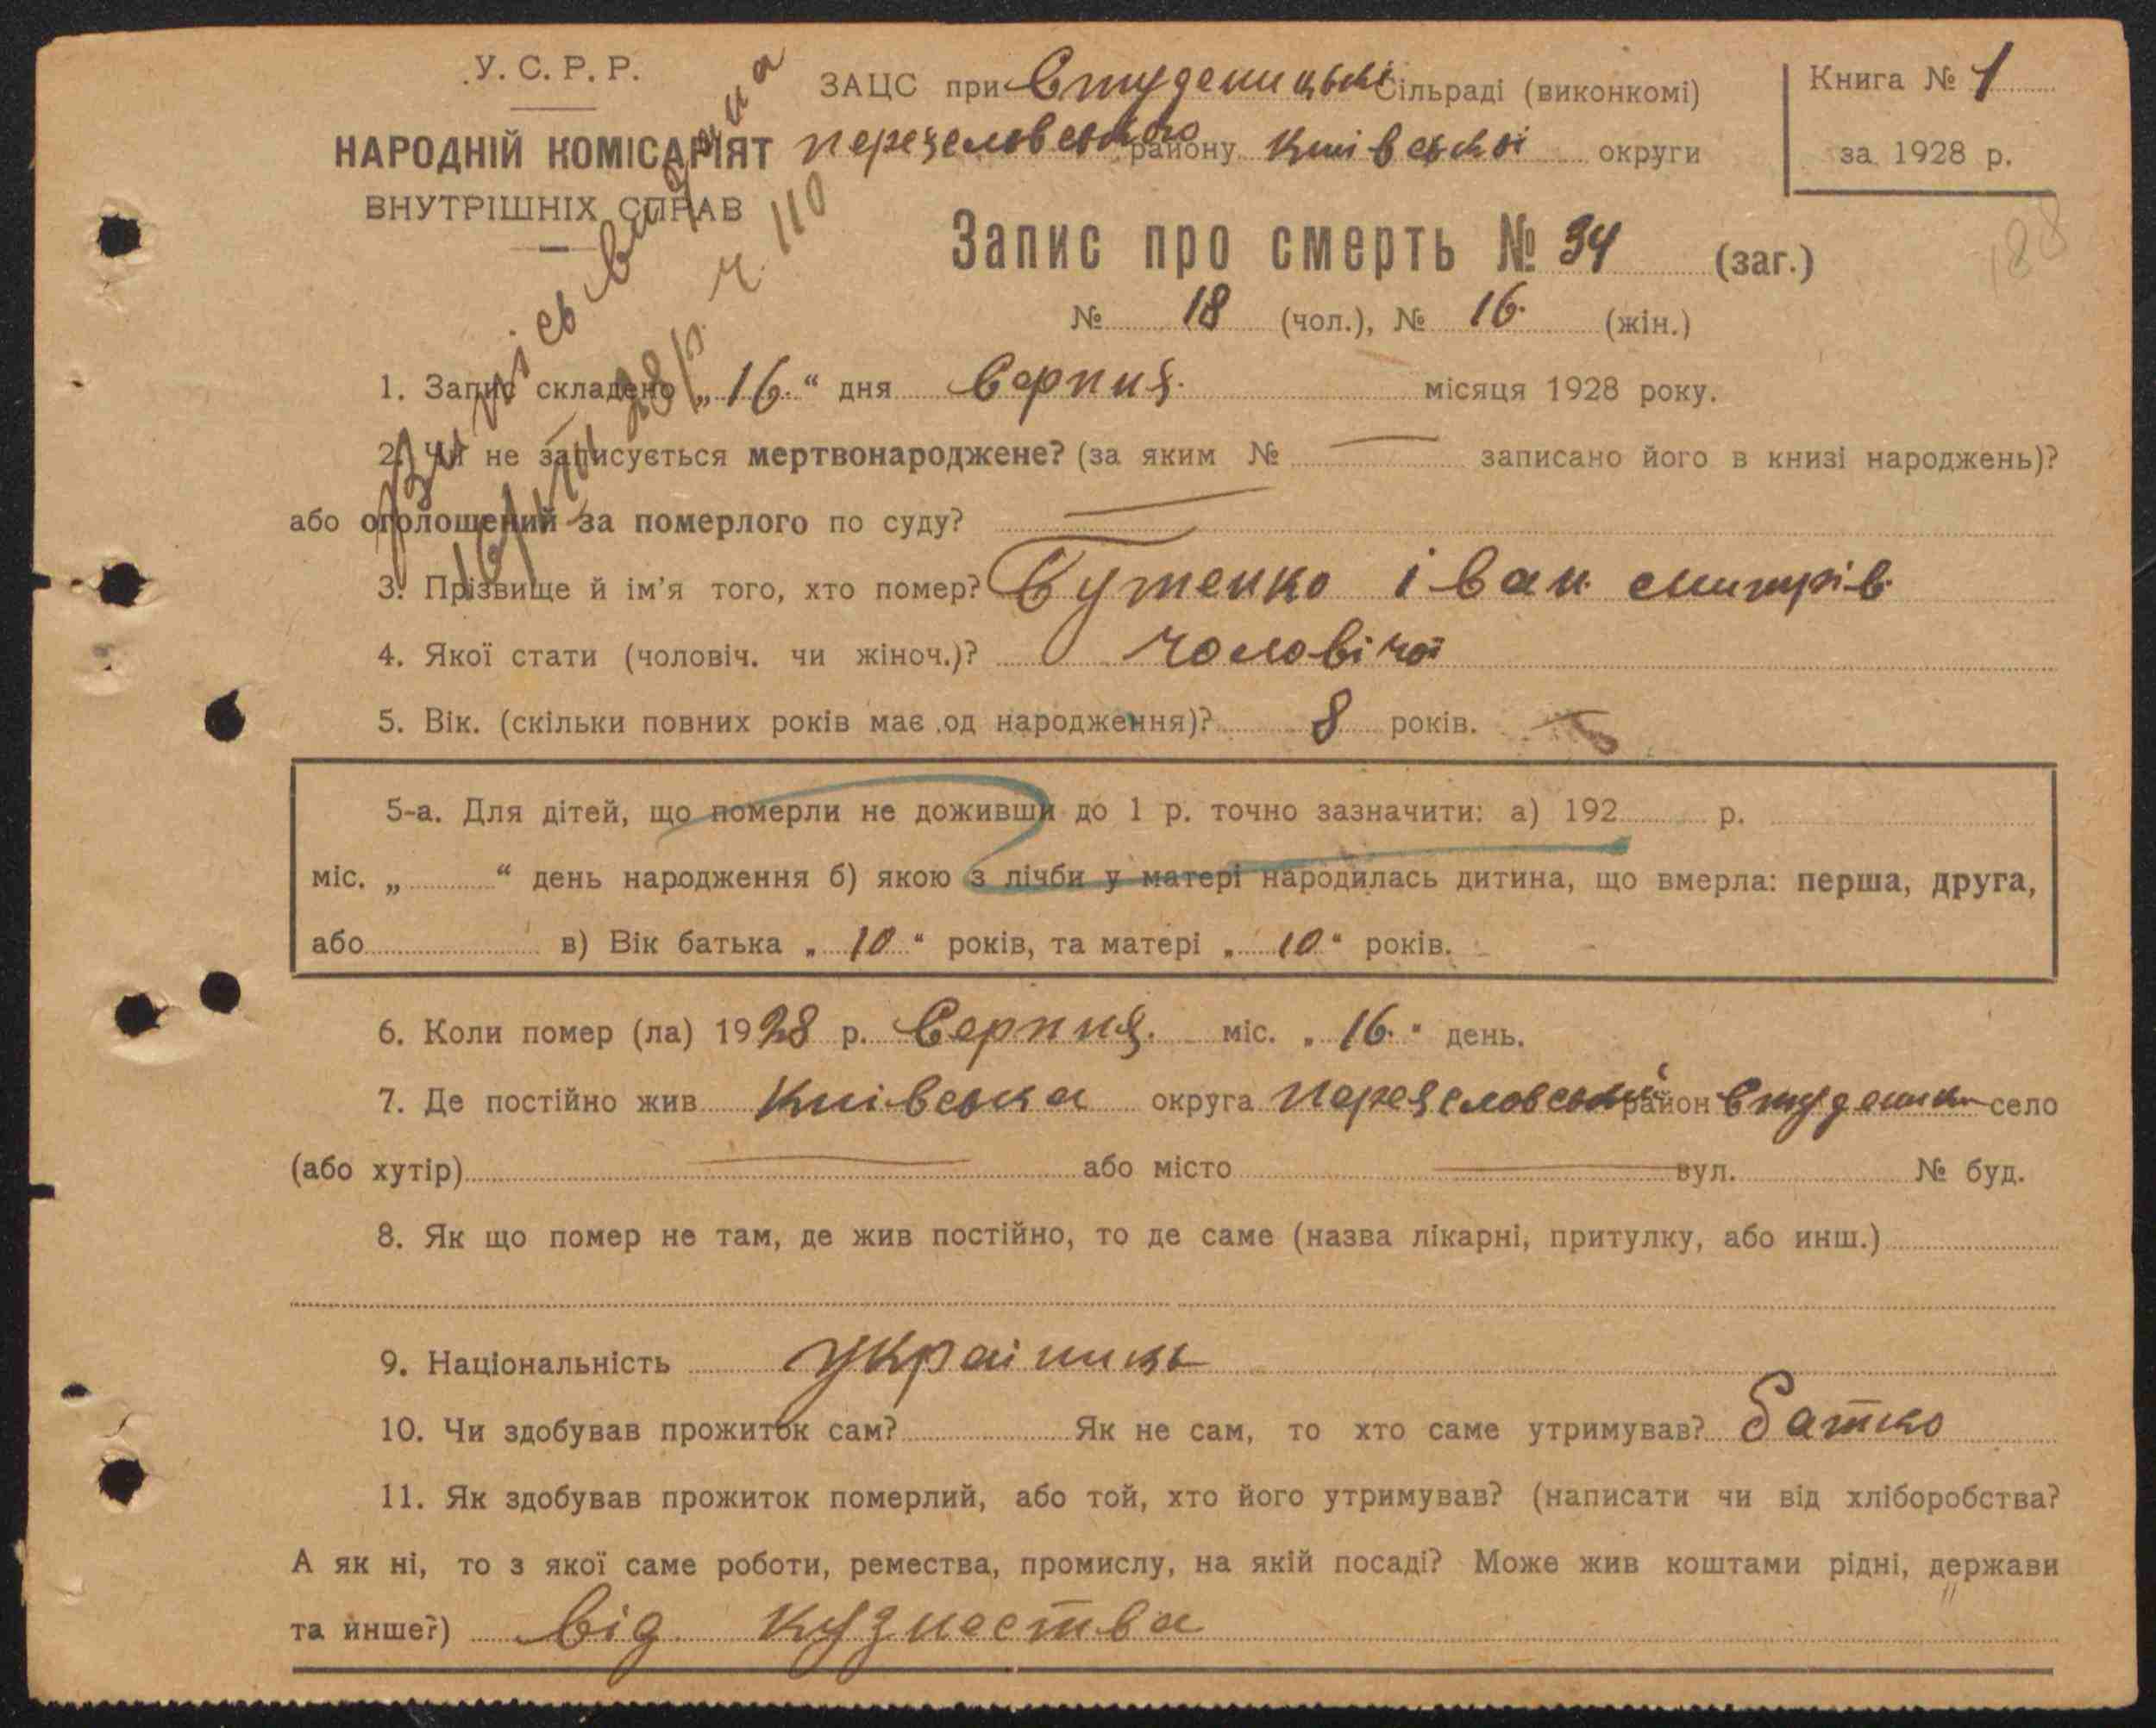 У. С. Р. Р.
НАРОДНІЙ КОМІСАРІЯТ
ВНУТРІШНІХ СПРАВ
ЗАЦС при Студеницькі Сільраді (виконкомі)
переяславського району Київської округи
Книга № 1
за 1928 р.
Випись видана
16/VIII 28 р. ч. 110
188
Запис про смерть № 34 (заг.)
№ 18 (чол.), № 16. (жін.)
1. Запис складено „16.“ дня Серпня. місяця 1928 року.
2. Чи не записується мертвонароджене? (за яким № — записано його в книзі народжень)?
або оголошений за померлого по суду? —
3. Прізвище й ім’я того, хто помер? Бутенко іван
4. Якої стати (чоловіч. чи жіноч.)? чоловічої
5. Вік. (скільки повних років має од народження)? 8 років.
5-а. Для дітей, що померли не доживши до 1 р. точно зазначити: а) 192 р.
міс. „ “ день народження б) якою з лічби у матері народилась дитина, що вмерла: перша, друга,
або в) Вік батька „10“ років, та матері „10“ років.
6. Коли помер (ла) 1928 р. Серпня. міс. „16.“ день.
7. Де постійно жив Київська округа Переяславський район Студеники село
(або хутір) — або місто — вул. № буд.
8. Як що помер не там, де жив постійно, то де саме (назва лікарні, притулку, або инш.)
9. Національність українць
10. Чи здобував прожиток сам? Як не сам, то хто саме утримував? Батко
11. Як здобував прожиток померлий, або той, хто його утримував? (написати чи від хліборобства?
А як ні, то з якої саме роботи, ремества, промислу, на якій посаді? Може жив коштами рідні, держави
та инше?) від кузнества